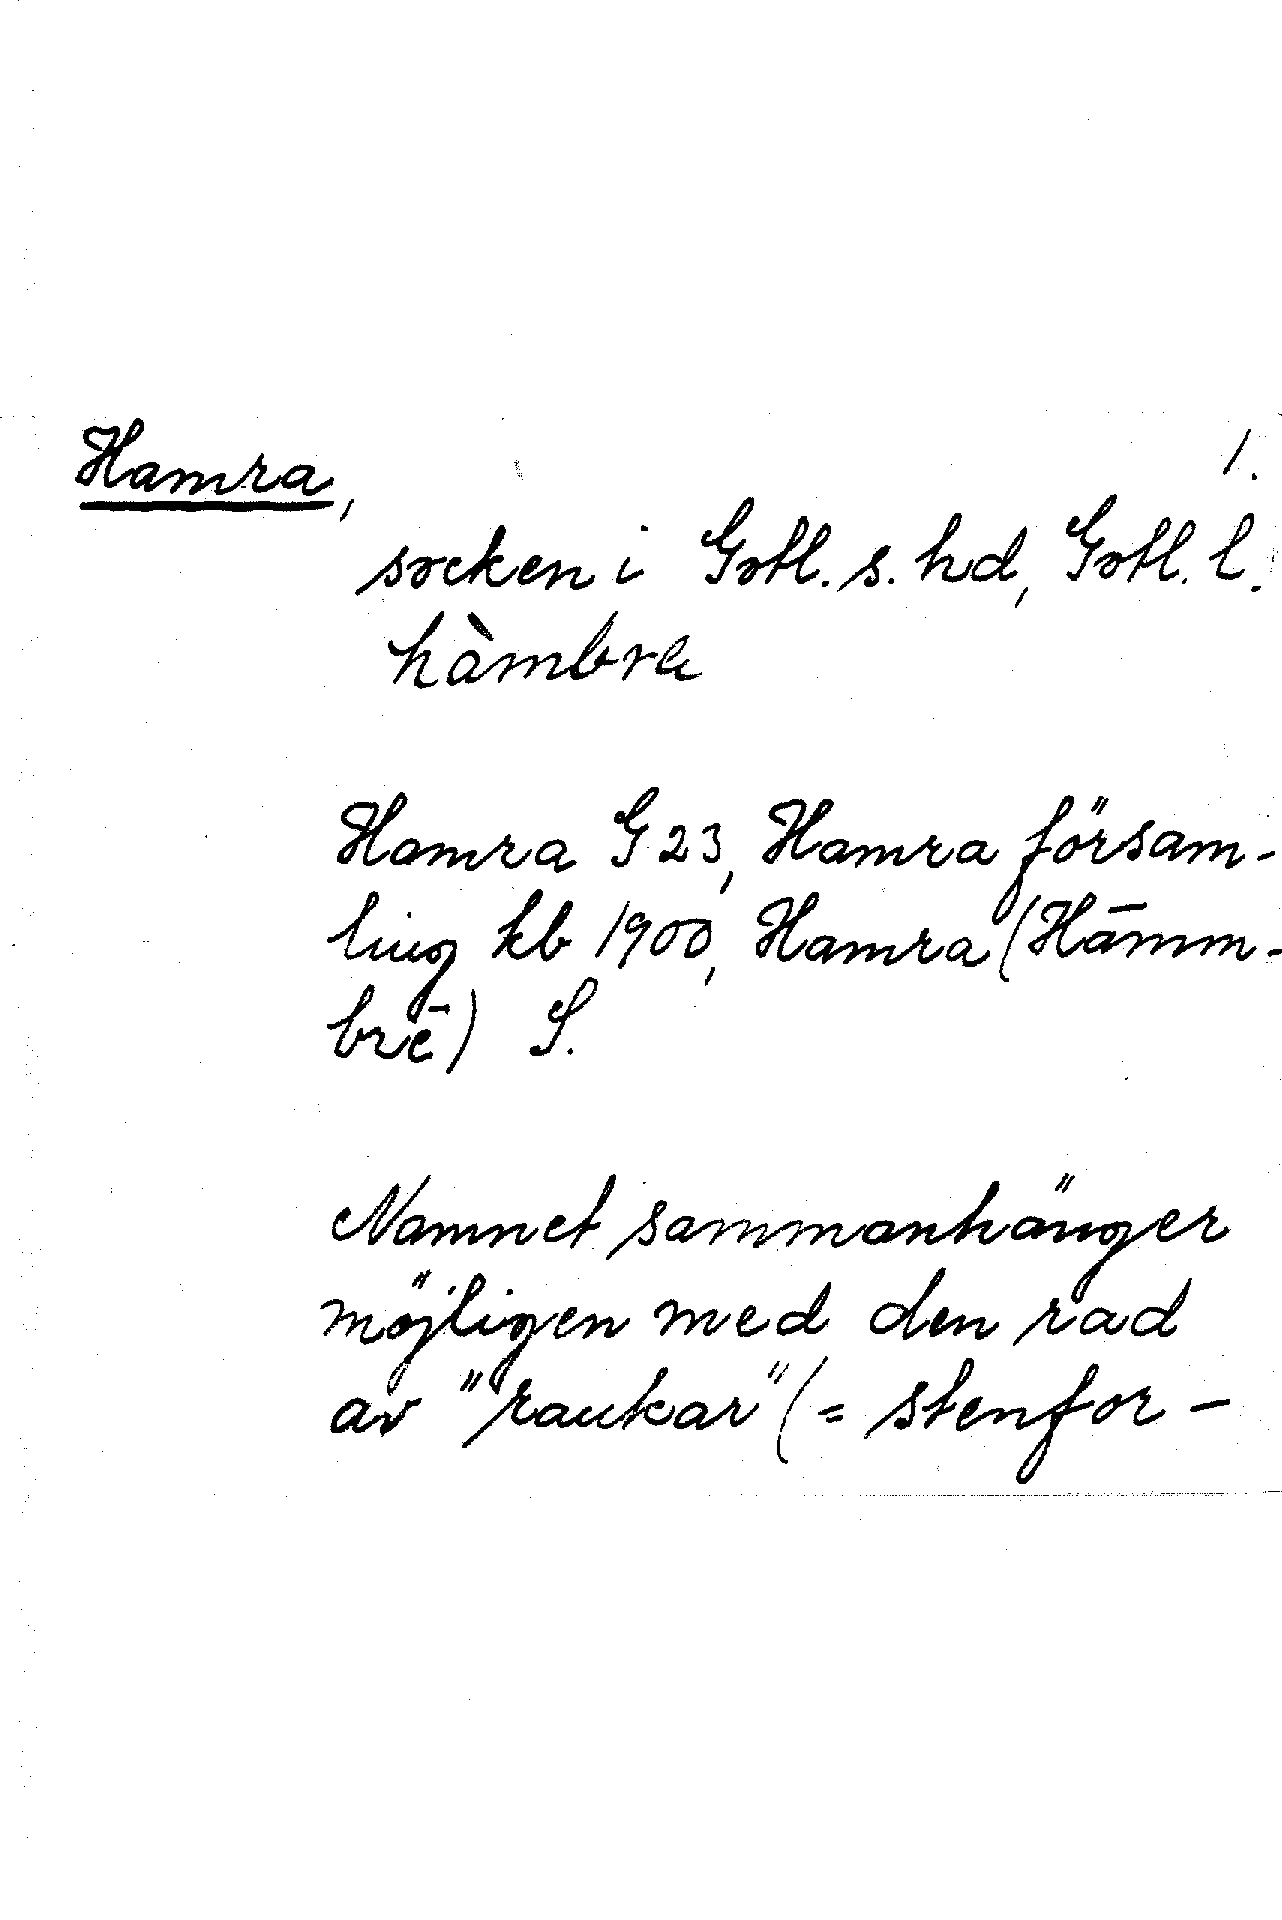 Hamra,
1.
socken i Gotl. s. hd, Gotl. l.
hàmbra
Hamra G 23, Hamra försam-
ling kb 1900, Hamra (Hāmm-
brē) S.
Namnet sammanhänger
möjligen med den rad
av "raukar" (= stenfor-